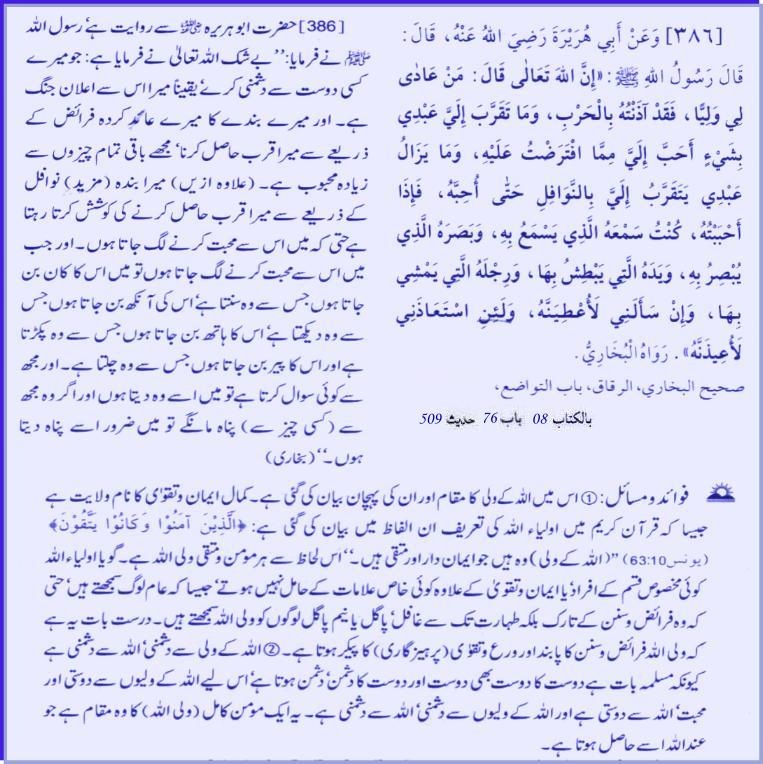 [٣٨٦] وَعَنْ أَبِي هُرَيْرَةَ رَضِيَ اللهُ عَنْهُ، قَالَ:
قَالَ رَسُولُ اللهِ ﷺ: «إِنَّ اللهَ تَعَالٰى قَالَ: مَنْ عَادٰى
لِي وَلِيًّا، فَقَدْ آذَنْتُهُ بِالْحَرْبِ، وَمَا تَقَرَّبَ إِلَيَّ عَبْدِي
بِشَيْءٍ أَحَبَّ إِلَيَّ مِمَّا افْتَرَضْتُ عَلَيْهِ، وَمَا يَزَالُ
عَبْدِي يَتَقَرَّبُ إِلَيَّ بِالنَّوَافِلِ حَتّٰى أُحِبَّهُ، فَإِذَا
أَحْبَبْتُهُ، كُنْتُ سَمْعَهُ الَّذِي يَسْمَعُ بِهِ، وَبَصَرَهُ الَّذِي
يُبْصِرُ بِهِ، وَيَدَهُ الَّتِي يَبْطِشُ بِهَا، وَرِجْلَهُ الَّتِي يَمْشِي
بِهَا، وَإِنْ سَأَلَنِي لَأُعْطِيَنَّهُ، وَلَئِنِ اسْتَعَاذَنِي
لَأُعِيذَنَّهُ». رَوَاهُ الْبُخَارِيُّ.
صحيح البخاري، الرقاق، باب التواضع،
بالكتاب 08 باب 76 حديث 509
[386] حضرت ابوہریرہ ﷜ سے روایت ہے، رسول اللہ
ﷺ نے فرمایا: ”بے شک اللہ تعالیٰ نے فرمایا ہے: جو میرے
کسی دوست سے دشمنی کرے یقیناً میرا اس سے اعلان جنگ
ہے۔ اور میرے بندے کا میرے عائد کردہ فرائض کے
ذریعے سے میرا قرب حاصل کرنا، مجھے باقی تمام چیزوں سے
زیادہ محبوب ہے۔ (علاوہ ازیں) میرا بندہ (مزید) نوافل
کے ذریعے سے میرا قرب حاصل کرنے کی کوشش کرتا رہتا
ہے حتی کہ میں اس سے محبت کرنے لگ جاتا ہوں۔ اور جب
میں اس سے محبت کرنے لگ جاتا ہوں تو میں اس کا کان بن
جاتا ہوں جس سے وہ سنتا ہے، اس کی آنکھ بن جاتا ہوں جس
سے وہ دیکھتا ہے، اس کا ہاتھ بن جاتا ہوں جس سے وہ پکڑتا
ہے اور اس کا پیر بن جاتا ہوں جس سے وہ چلتا ہے۔ اور مجھ
سے کوئی سوال کرتا ہے تو میں اسے وہ دیتا ہوں اور اگر وہ مجھ
سے (کسی چیز سے) پناہ مانگے تو میں ضرور اسے پناہ دیتا
ہوں۔“ (بخاری)
فوائد و مسائل: ① اس میں اللہ کے ولی کا مقام اور ان کی پہچان بیان کی گئی ہے۔ کمال ایمان و تقوٰی کا نام ولایت ہے
جیسا کہ قرآن کریم میں اولیاء اللہ کی تعریف ان الفاظ میں بیان کی گئی ہے: ﴿الَّذِيْنَ آمَنُوْا وَكَانُوْا يَتَّقُوْنَ﴾
(یونس 63:10) ”(اللہ کے ولی) وہ ہیں جو ایمان دار اور متقی ہیں۔“ اس لحاظ سے ہر مومن و متقی ولی اللہ ہے۔ گویا اولیاء اللہ
کوئی مخصوص قسم کے افراد یا ایمان و تقویٰ کے علاوہ کوئی خاص علامات کے حامل نہیں ہوتے، جیسا کہ عام لوگ سمجھتے ہیں، حتی
کہ وہ فرائض و سنن کے تارک بلکہ طہارت تک سے غافل، پاگل یا نیم پاگل لوگوں کو ولی اللہ سمجھتے ہیں۔ درست بات یہ ہے
کہ ولی اللہ فرائض و سنن کا پابند اور ورع و تقوٰی (پرہیزگاری) کا پیکر ہوتا ہے۔ ② اللہ کے ولی سے دشمنی، اللہ سے دشمنی ہے
کیونکہ مسلمہ بات ہے دوست کا دوست بھی دوست اور دوست کا دشمن، دشمن ہوتا ہے، اس لیے اللہ کے ولیوں سے دوستی اور
محبت، اللہ سے دوستی ہے اور اللہ کے ولیوں سے دشمنی، اللہ سے دشمنی ہے۔ یہ ایک مومن کامل (ولی اللہ) کا وہ مقام ہے جو
عنداللہ اسے حاصل ہوتا ہے۔